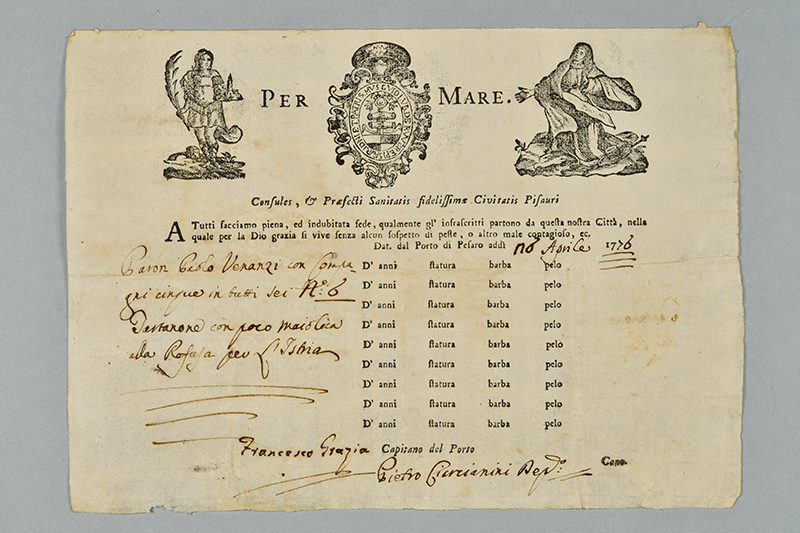 PER MARE.
Consules, & Præfecti Sanitatis fidelissimæ Civitatis Pisauri
A Tutti facciamo piena, ed indubitata fede, qualmente gl' infrascritti partono da questa nostra Città, nella
quale per la Dio grazia si vive senza alcun sospetto di peste, o altro male contagioso, ec.
Dat. dal Porto di Pesaro addì 16 Aprile 1776
Paron Paolo Venanzi con Compa-
gni cinque in tutti sei N.º 6
Tartanone con poco maiolica
alla Rofusa per L'Istria
D' anni statura barba pelo
D' anni statura barba pelo
D' anni statura barba pelo
D' anni statura barba pelo
D' anni statura barba pelo
D' anni statura barba pelo
D' anni statura barba pelo
D' anni statura barba pelo
D' anni statura barba pelo
Francesco Grazia Capitano del Porto
Pietro Canc.